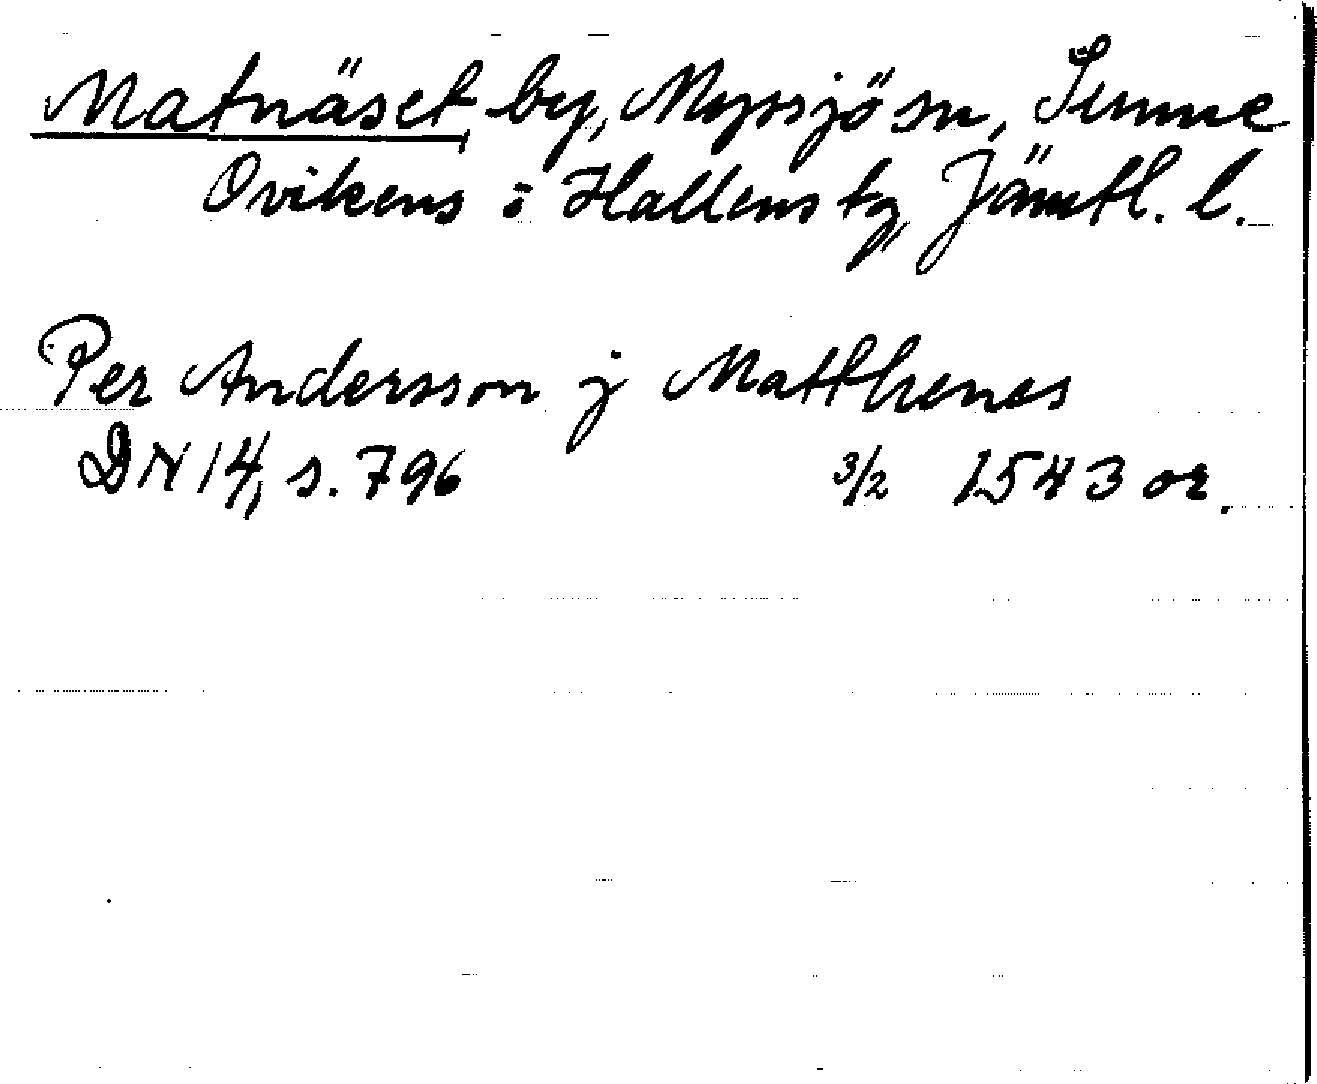 Matnäset, by, Myssjö sn, Sunne
Ovikens o Hallens tg, Jämtl. l.
Per Andersson j Matthenes
DN 14, s. 796 3/2 1543 or.